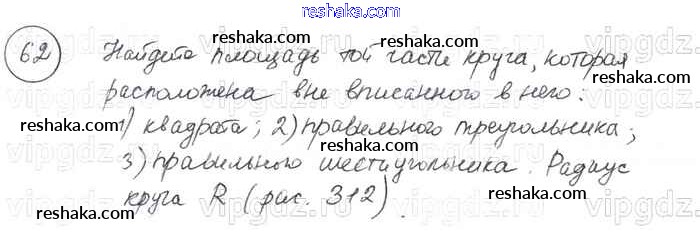 reshaka.com
62 Найдите площадь той части круга, которая
расположена вне вписанного в него:
1) квадрата; 2) правильного треугольника;
3) правильного шестиугольника. Радиус
круга R (рис. 312).
reshaka.com
reshaka.com
reshaka.com
reshaka.com
reshaka.com
reshaka.com
reshaka.com
reshaka.com
vipgdz
vipgdz
vipgdz
vipgdz